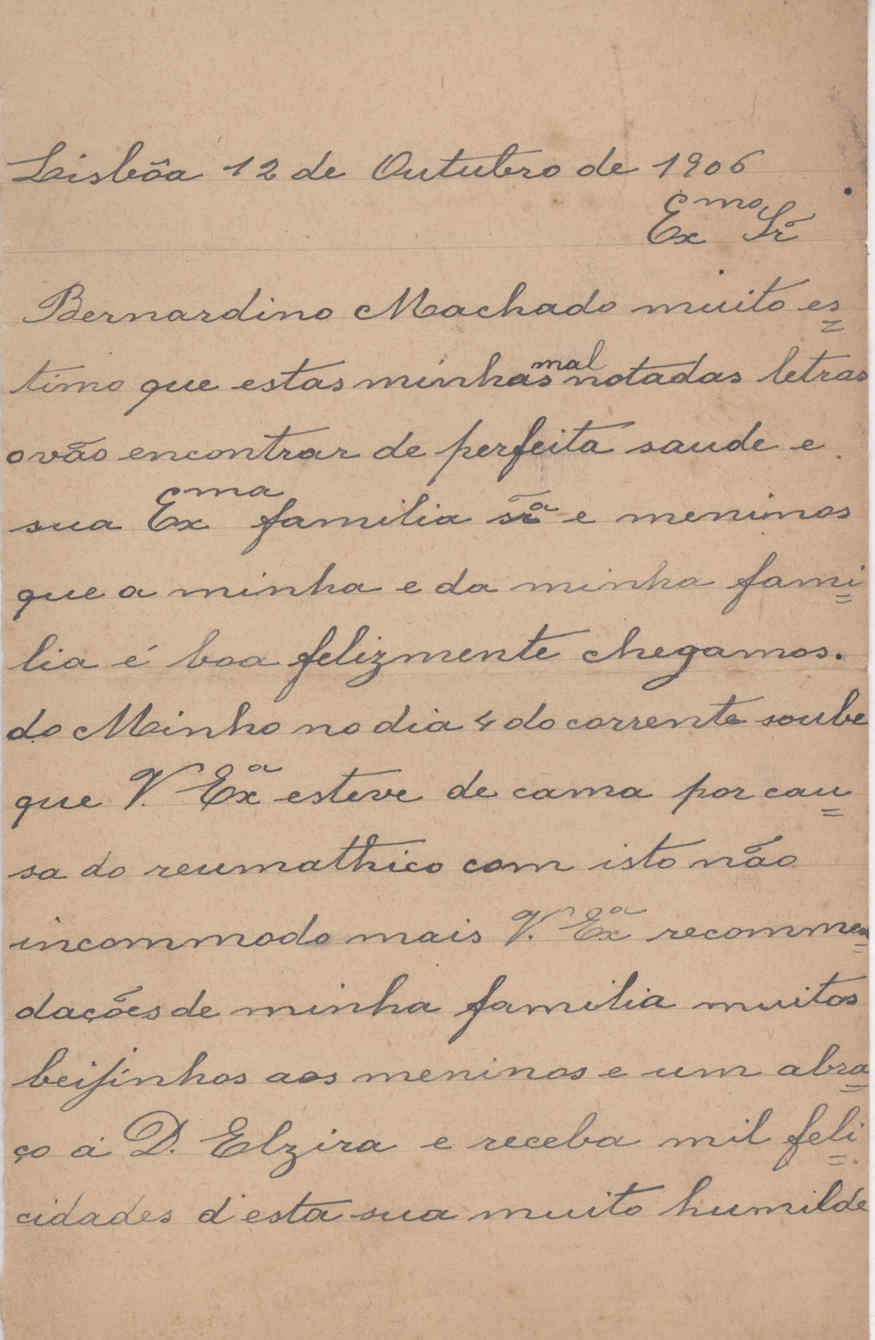 Lisbôa 12 de Outubro de 1906
Exmo Sr
Bernardino Machado muito es=
timo que estas minhas mal notadas letras
o vão encontrar de perfeita saude e
sua Exma familia srã e meninos
que a minha e da minha fami=
lia é boa felizmente chegamos.
do Minho no dia 4 do corrente soube
que V. Exa esteve de cama por cau=
sa do reumathico com isto não
incommodo mais V. Exa recommen=
dações de minha familia muitos
beijinhos aos meninos e um abra=
ço á D. Elzira e receba mil feli=
cidades d'esta sua muito humilde